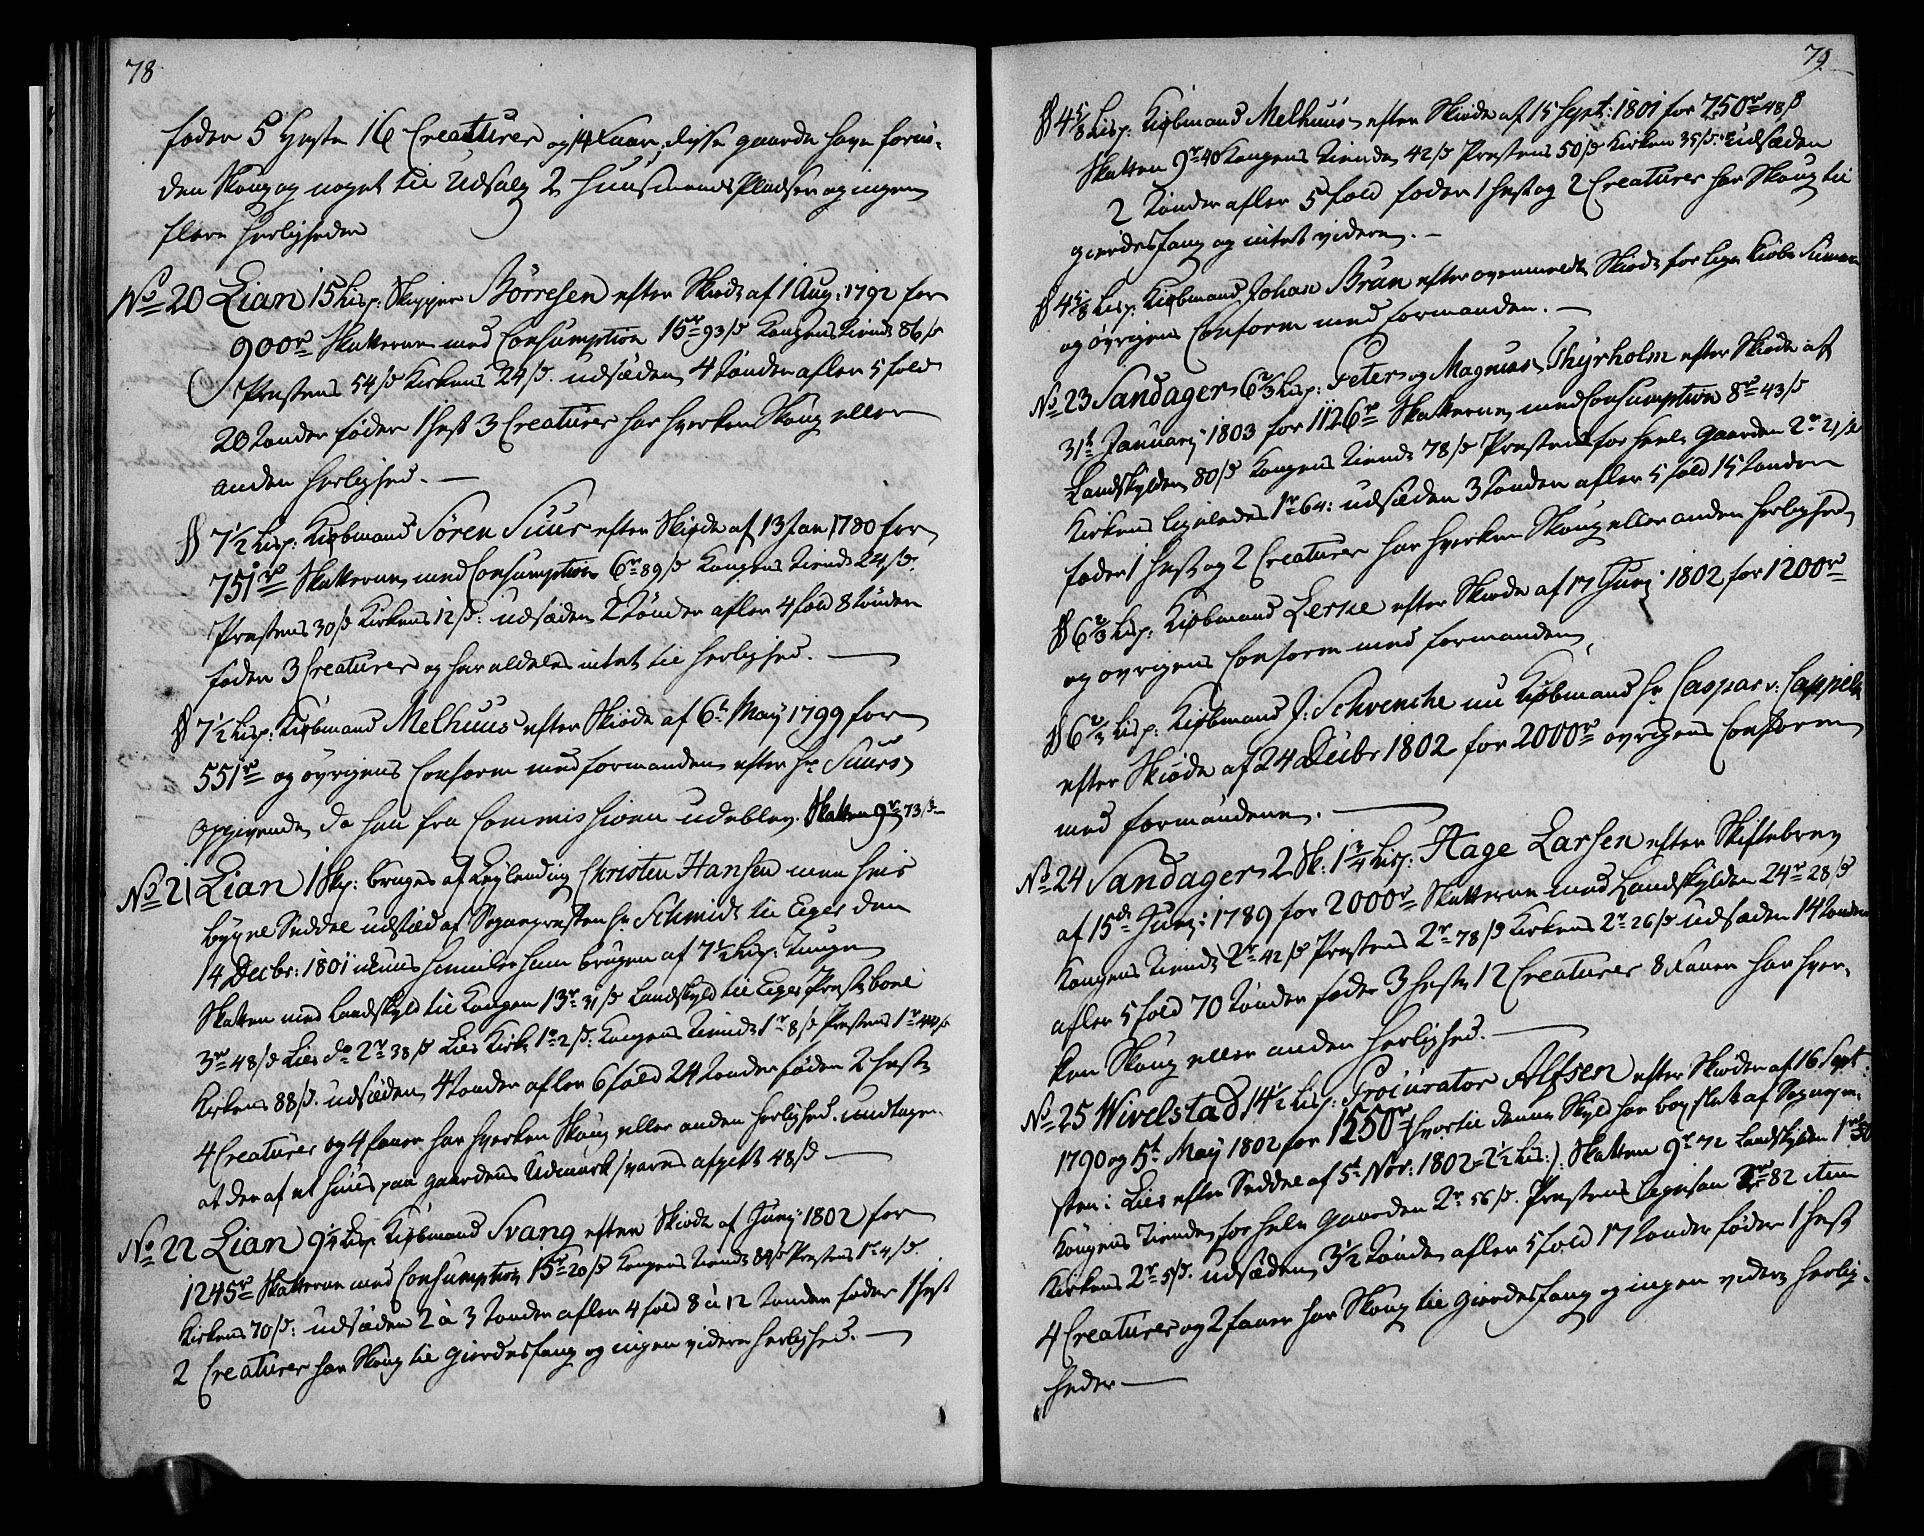 78
foder 5 Heste 16 Creaturer og 14 Faar, disse gaarde have foruden
Skoug og noget til Udsalg 2 Huusmands Pladser og ingen
flere Herligheder
No 20 Lian 15 Lisp: Skipper Börresen efter Skiöde af 1 Aug: 1792 for
900 r Skatterne med Consumption 15 r 93 s Kongens Tiende 86 s
Prestens 54 s Kirkens 24 s. udsæden 4 Tonder afler 5 fold
20 Tonder föder 1 Hest 3 Creaturer har hverken Skoug eller
anden Herlighed. —
§ 7½ Lisp: Kiöbmand Sören Suur efter Skiöde af 13 Jan 1780 for
751 r Skatterne med Consumption 6 r 89 s Kongens Tiende 24 s.
Prestens 30 s Kirkens 12 s: udsæden 2 Tönder afler 4 fold 8 Tönder
foder 3 Creaturer og har aldeles intet til Herlighed. —
§ 7½ Lisp: Kiöbmand Melhuus efter Skiöde af 6t May 1799 for
551 r og övrigens Conform med formanden efter Hr Suurs
Opgivende, da han fra Commissionen udeblev. Skatten 9 r 73 s —
No 21 Lian 1 Skp: bruges af Leylending Christen Hansen men hvis
bygsel Seddel udstæd af Sognepræsten Hr Schmidt til Eger den
14 Decbr: 1801 ham brugen af 7½ Lisp: Tunge
Skatten med Landskyld til Kongen 13 r 31 s Landskyld til Eger Prestebord
3 r 48 s Lier do 2 r 38 s Lier Kirke 1 r 2 s: Kongens Tiende 1 r 8 s Prestens 1 r 40 s
Kirkens 88 s. udsæden 4 Tonder afler 6 fold 24 Tonder föder 2 Heste
4 Creaturer og 4 faar har hverken Skoug eller anden Herlighed. undtagen
at der af et Huus paa gaardens Udmark svares afgift 48 s —
No 22 Lian 9¼ Lisp Kiöbmand Svang efter Skiöde af Juny 1802 for
1245 r Skatterne med Consumption 15 r 20 s Kongens Tiende 84 s Prestens 1 r 4 s.
Kirkens 70 s: udsæden 2 à 3 Tonder afler 4 fold 8 à 12 Tonder foder 1 Hest
2 Creaturer har Skoug til Giærdesfang og ingen videre Herlighed. —
79
§ 4⅝ Lisp: Kiöbmand Melhuus efter Skiöde af 15 Sept: 1801 for 750 r 48 s
Skatten 9 r 40 Kongens Tiende 42 s Prestens 50 s Kirken 35 s: Udsæden
2 Tonder afler 5 fold foder 1 Hest og 2 Creaturer har Skoug til
gierdesfang og intet videre. —
§ 4⅝ Lisp: Kiöbmand Johan Brun efter ovenmeldte Skiöde for lige Kiöbe Summa
og övrigens Conform med formanden. —
No 23 Sandager 6⅔ Lisp: Peter og Magnus Thyrholm efter Skiöde af
31t January 1803 for 1126 r Skatterne med Consumption 8 r 43 s
Landskylden 80 s Kongens Tiende 78 s Prestens for heele Gaarden 2 r 21 s
Kirkens ligeledes 1 r 64: udsæden 3 Tonder afler 5 fold 15 Tonder
foder 1 Hest og 2 Creaturer har hverken Skoug eller anden Herlighed
§ 6⅔ Lisp: Kiöbmand Lerche efter Skiöde af 17 Juny 1802 for 1200 r
og övrigens Conform med formanden
§ 6⅔ Lisp: Kiöbmand J: Schwencke nu Kiöbmand Hr Caspar v: Cappelen
efter Skiöde af 24 1802 for 2000 r övrigens Conform
med formændene. —
No 24 Sandager 2 Sk: 1¾ Lisp: Hage Larsen efter Skiftebrev
af 15de Juny: 1789 for 2000 r Skatterne med Landskylden 24 r 28 s
Kongens Tiende 2 r 42 s Prestens 2 r 78 s Kirkens 2 r 26 s udsæden 14 Tonder
afler 5 fold 70 Tönder foder 3 Heste 12 Creaturer 8 Faar har hver-
ken Skoug eller anden Herlighed. —
No 25 Wivelstad 14½ Lisp: Procurator Alfsen efter Skiöder af 16 Sept:
1790 og 5t May 1802 for 1550 r (hvortil denne Skyld har bøxlet af Sognepre-
sten i Lier efter Seddel af 5t Nov: 1802 = 2½ Lis:) Skatten 9 r 72 Landskylden 1 r 30
Kongens Tiende for heele Gaarden 2 r 56 s. Prestens ligesaa 2 r 82 item
Kirkens 2 r 5 s. udsæden 3½ Tönde afler 5 fold 17 Tonder föder 1 Hest
4 Creaturer og 2 faar har Skoug til Gierdesfang og ingen videre Herlig-
heder —